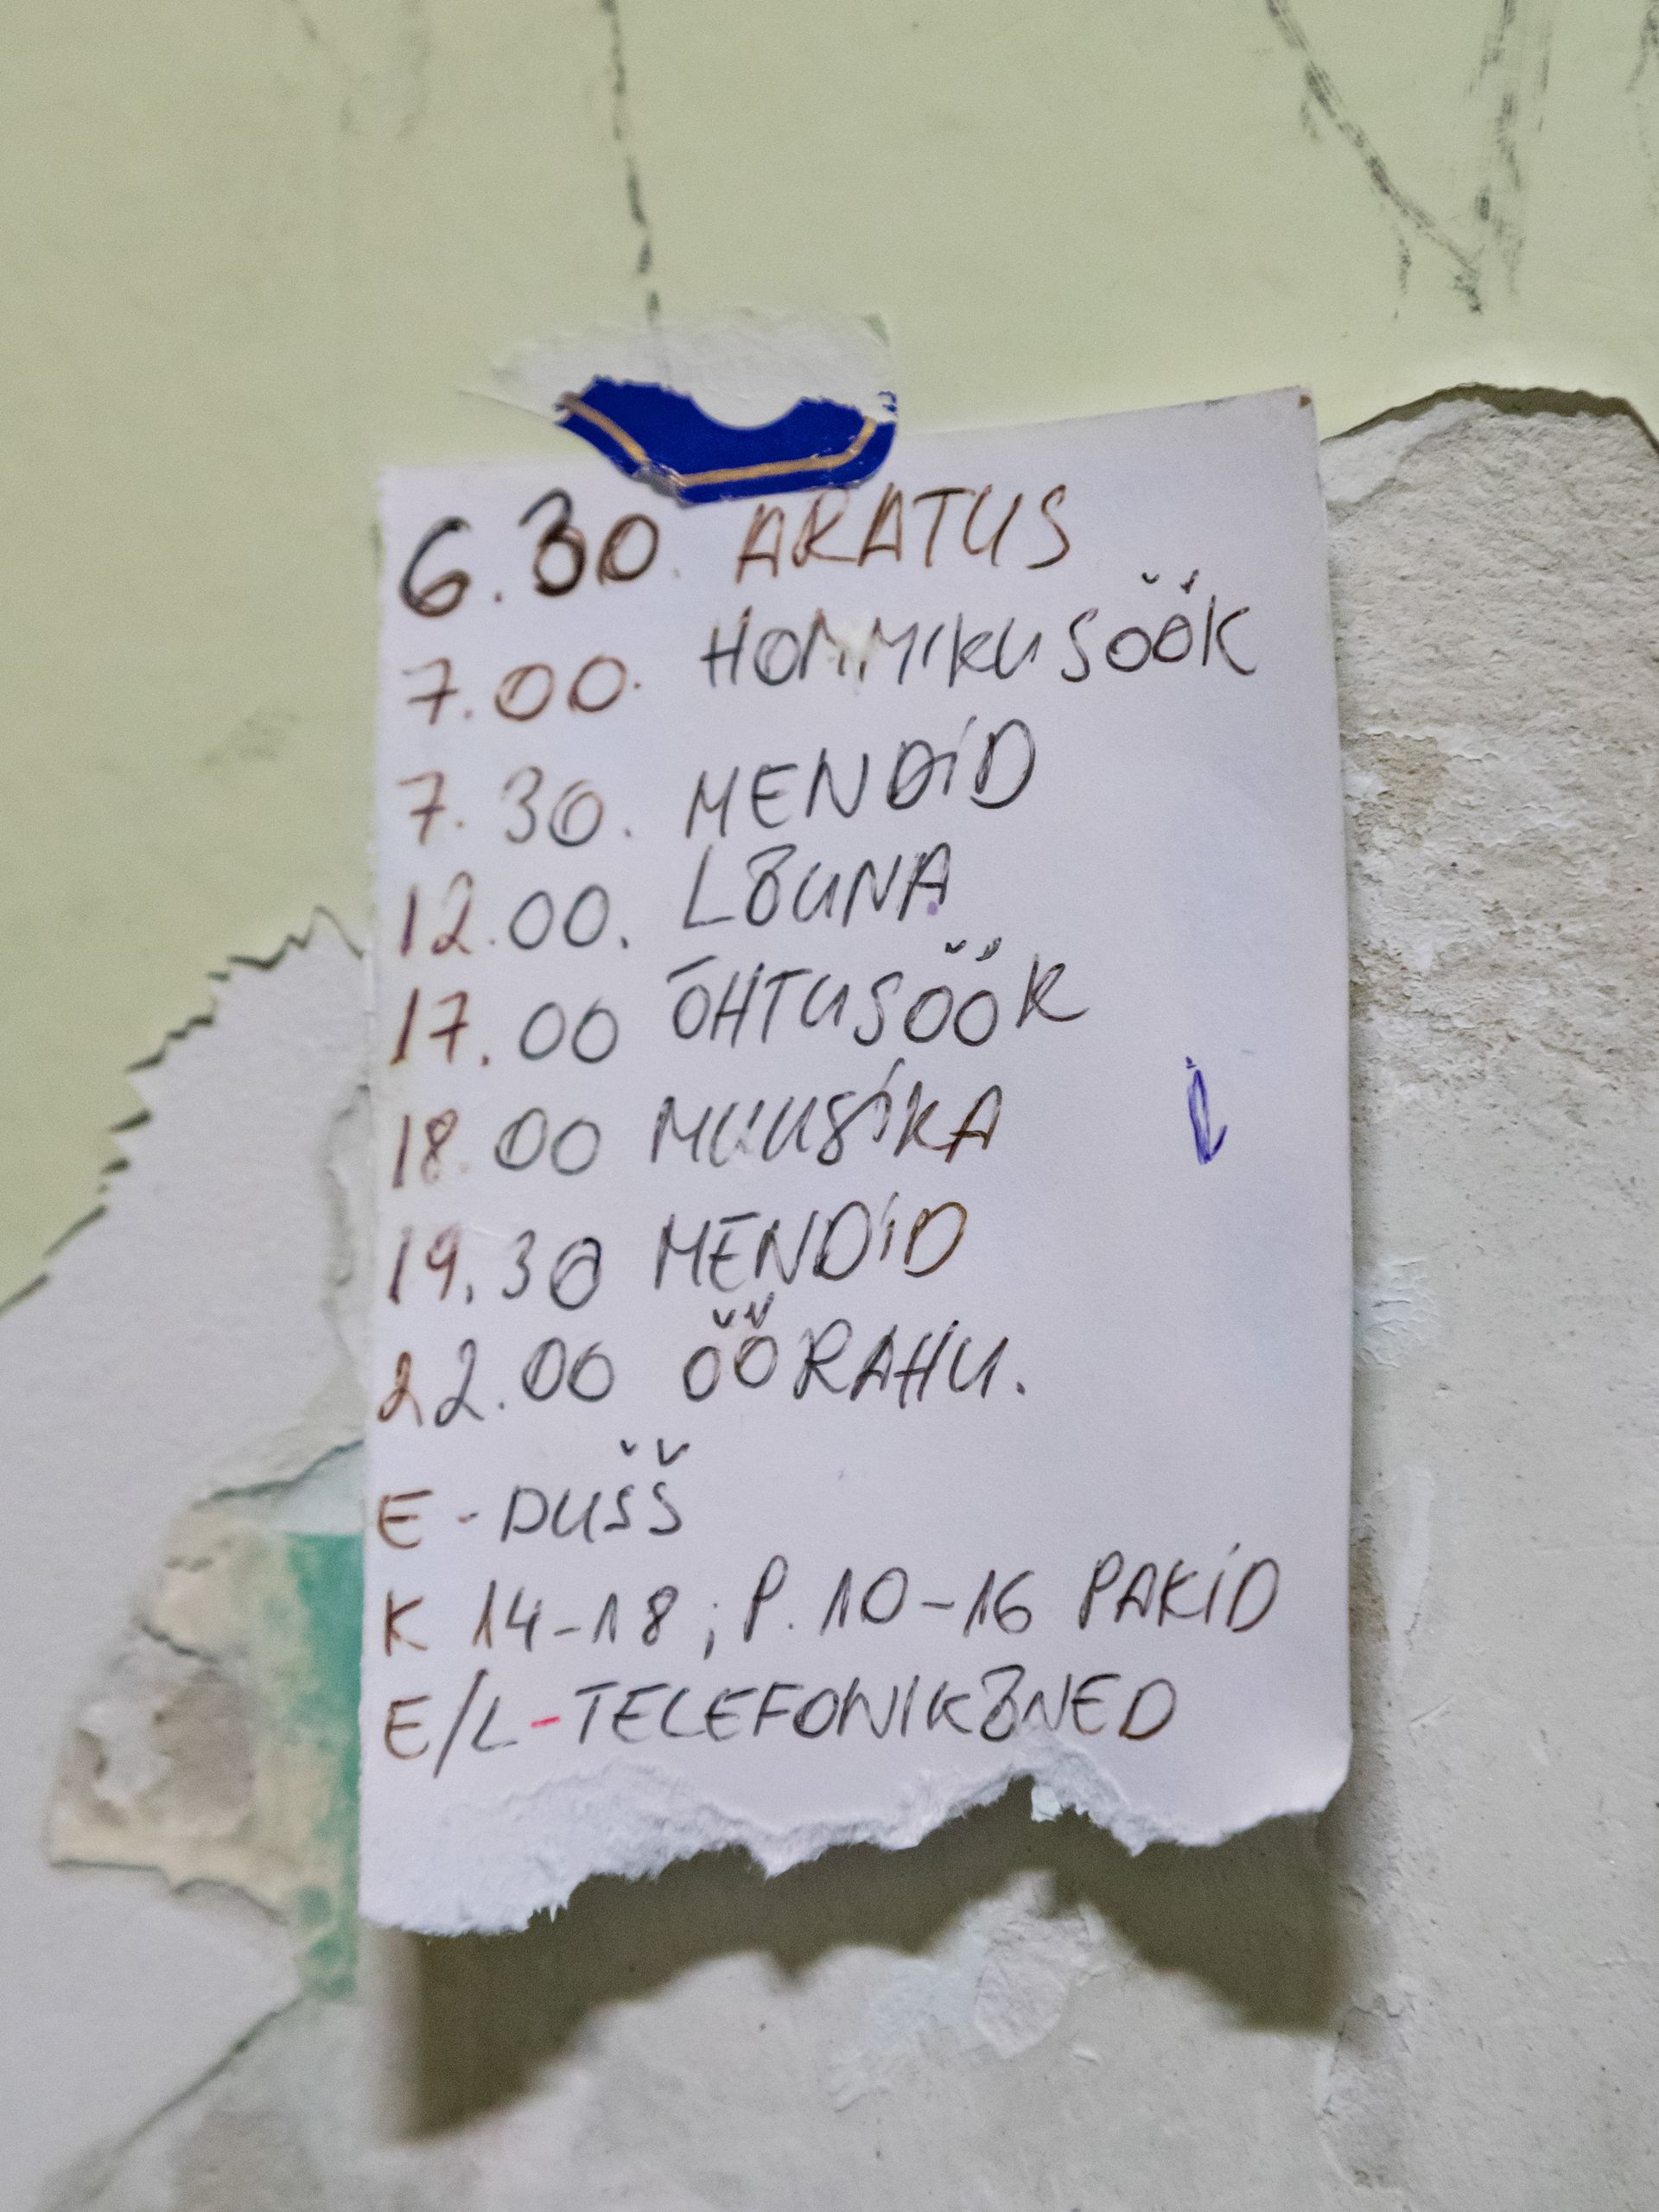 6.30. ARATUS
7.00. HOMMIKUSÖÖK
7.30. MENDID
12.00. LÕUNA
17.00 ÕHTUSÖÖK
18.00 MUUSIKA
19.30 MENDID
22.00 ÖÖRAHU.
E - DUŠŠ
K 14-18; P. 10-16 PAKID
E/L-TELEFONIKÕNED